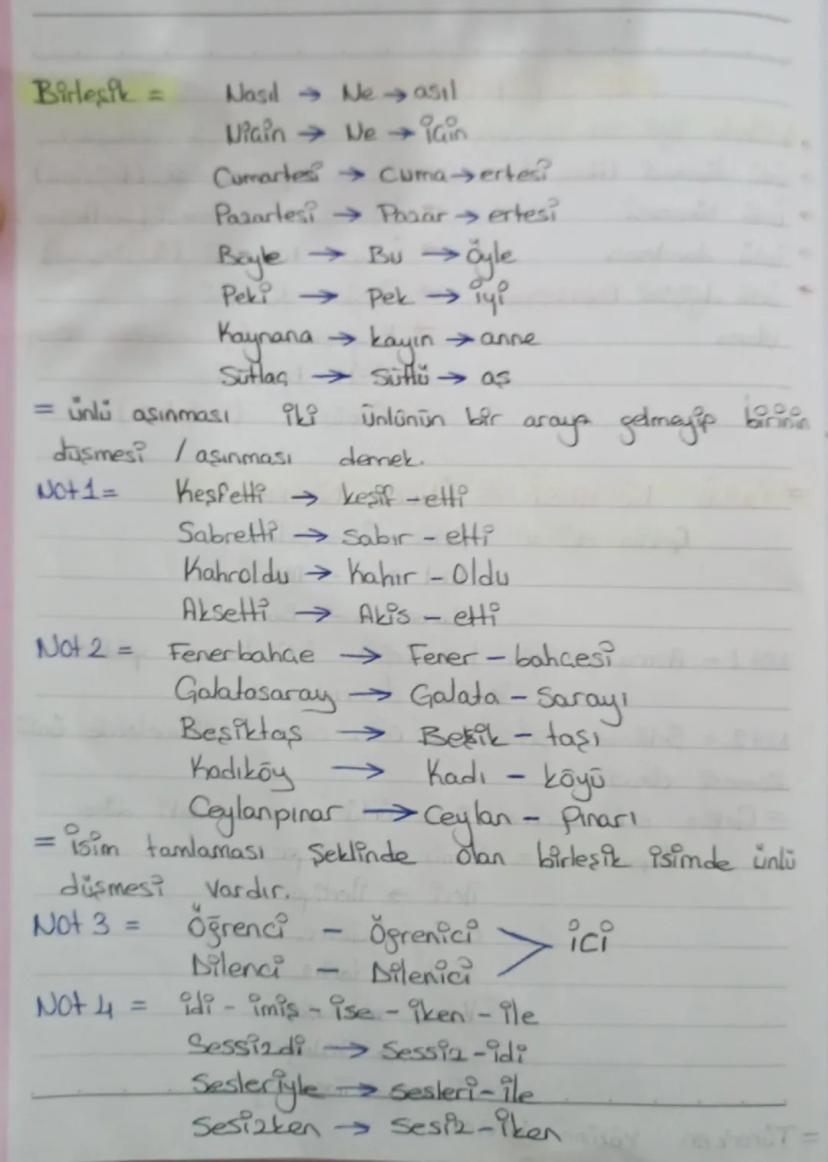 Birleşik = Nasıl → Ne → asıl
Niçin → Ne → için
Cumartesi → Cuma → ertesi
Pazartesi → Pazar → ertesi
Böyle → Bu → öyle
Peki → Pek → iyi
Kaynana → kayın → anne
Sütlaç → Sütlü → aş
= ünlü aşınması iki ünlünün bir araya gelmeyip birinin
düşmesi / aşınması demek.
Not 1 = Keşfetti → keşif - etti
Sabretti → Sabır - etti
Kahroldu → Kahır - Oldu
Aksetti → Akis - etti
Not 2 = Fenerbahçe → Fener - bahçesi
Galatasaray → Galata - Sarayı
Beşiktaş → Beşik - taşı
Kadıköy → Kadı - köyü
Ceylanpınar → Ceylan - Pınarı
= isim tamlaması şeklinde olan birleşik isimde ünlü
düşmesi vardır.
Not 3 = Öğrenci - Öğrenici > ici
Dilenci - Dilenici
Not 4 = idi - imiş - ise - iken - ile
Sessizdi → Sessiz - idi
Sesleriyle → sesleri - ile
Sesizken → Sesiz - iken